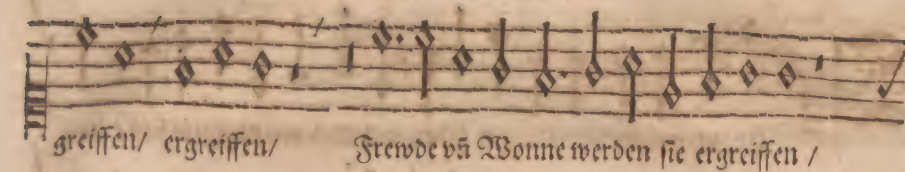 greiffen/ ergreiffen/ Frewde vñ Wonne werden sie ergreiffen /